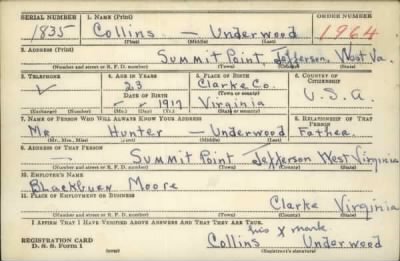 SERIAL NUMBER 1. NAME (Print) ORDER NUMBER
1835 Collins — Underwood 1964
(First) (Middle) (Last)
2. ADDRESS (Print)
Summit Point, Jefferson, West Va.
(Number and street or R. F. D. number) (Town) (County) (State)
3. TELEPHONE 4. AGE IN YEARS 5. PLACE OF BIRTH 6. COUNTRY OF CITIZENSHIP
23 Clarke Co.
DATE OF BIRTH (Town or county)
1917 Virginia U.S.A.
(Exchange) (Number) (Mo.) (Day) (Yr.) (State or country)
7. NAME OF PERSON WHO WILL ALWAYS KNOW YOUR ADDRESS 8. RELATIONSHIP OF THAT PERSON
Mr Hunter — Underwood Father
(Mr., Mrs., Miss) (First) (Middle) (Last)
9. ADDRESS OF THAT PERSON
— Summit Point Jefferson West Virginia
(Number and street or R. F. D. number) (Town) (County) (State)
10. EMPLOYER'S NAME
Blackburn Moore
11. PLACE OF EMPLOYMENT OR BUSINESS
Clarke Virginia
(Number and street or R. F. D. number) (Town) (County) (State)
I AFFIRM THAT I HAVE VERIFIED ABOVE ANSWERS AND THAT THEY ARE TRUE.
his X mark
REGISTRATION CARD Collins Underwood
D. S. S. Form 1 (Registrant's signature)